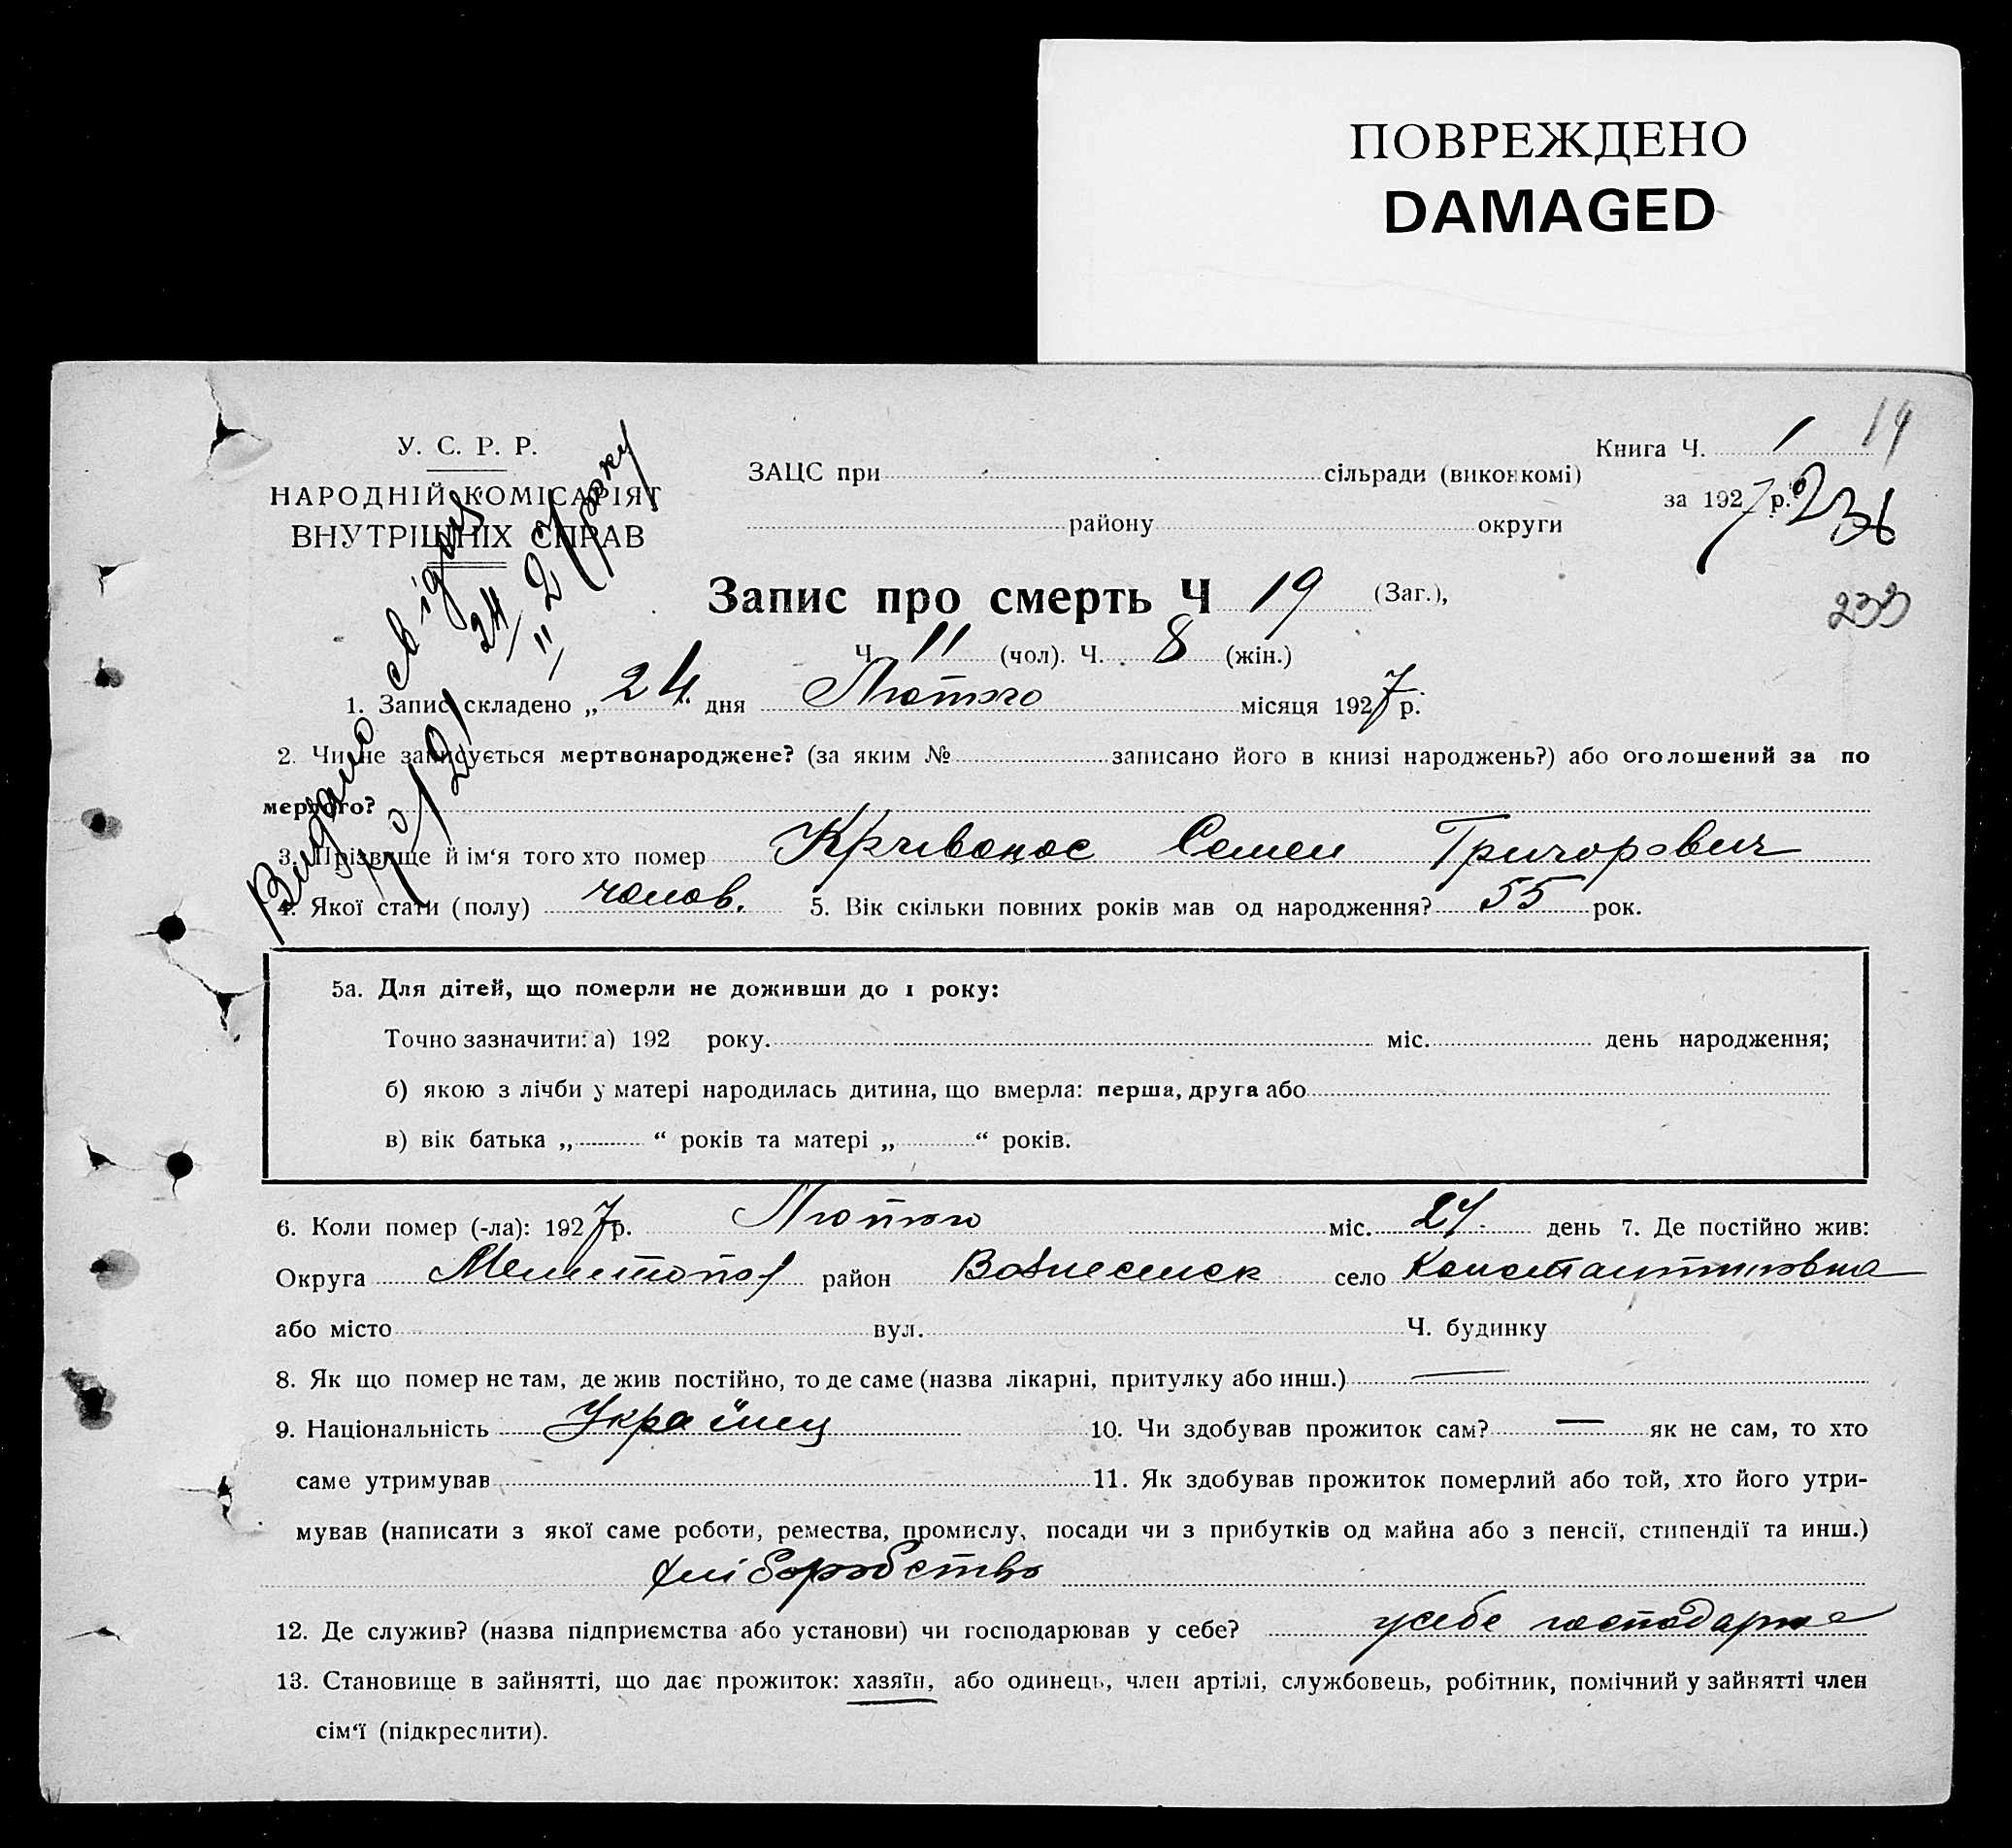 ПОВРЕЖДЕНО
DAMAGED
У. С. Р. Р.
НАРОДНІЙ КОМІСАРІЯТ
ВНУТРІШНІХ СПРАВ
ЗАЦС при сільради (виконкомі)
району округи
Книга Ч. 1 19
за 1927 р.
236
233
Видано свідоц
24/2 27 року
Запис про смерть Ч 19 (Заг.),
Ч 11 (чол). Ч. 8 (жін.)
1. Запис складено „ 24 " дня Лютого місяця 1927 р.
2. Чи не записується мертвонароджене? (за яким № записано його в книзі народжень?) або оголошений за по
мерлого?
3. Прізвище й ім‘я того хто помер Кривонос Семен Григорович
4. Якої стати (полу) чолов. 5. Вік скільки повних років мав од народження? 55 рок.
5а. Для дітей, що померли не доживши до 1 року:
Точно зазначити: а) 192 року. міс. день народження;
б) якою з лічби у матері народилась дитина, що вмерла: перша, друга або
в) вік батька „ “ років та матері „ “ років.
6. Коли помер (-ла): 1927 р. Лютого міс. 24 день 7. Де постійно жив:
Округа Мелитопол район Вознесенск село Константиновка
або місто вул. Ч. будинку
8. Як що помер не там, де жив постійно, то де саме (назва лікарні, притулку або инш.) —
9. Національність Українец 10. Чи здобував прожиток сам? — як не сам, то хто
саме утримував 11. Як здобував прожиток померлий або той, хто його утри-
мував (написати з якої саме роботи, ремества, промислу, посади чи з прибутків од майна або з пенсії, стипендії та инш.)
хліборобство
12. Де служив? (назва підприємства або установи) чи господарював у себе? усебе господарюв
13. Становище в зайнятті, що дає прожиток: хазяїн, або одинець, член артілі, службовець, робітник, помічний у зайнятті член
сім‘ї (підкреслити).